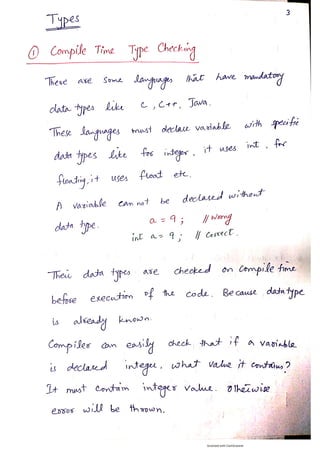 3
Types
① Compile Time Type Checking
There are some languages that have mandatory
data types like C, C++, Java.
These languages must declare variable with specific
data types like for integer, it uses int, for
floating, it uses float etc.
A variable can not be declared without
data type.
a = 9; // Wrong
int a = 9; // Correct.
Their data types are checked on Compile time
before execution of the code. Because data type
is already known.
Compiler can easily check that if a variable
is declared integer, what value it contains?
It must contain integer value. Otherwise
error will be thrown.
Scanned with CamScanner